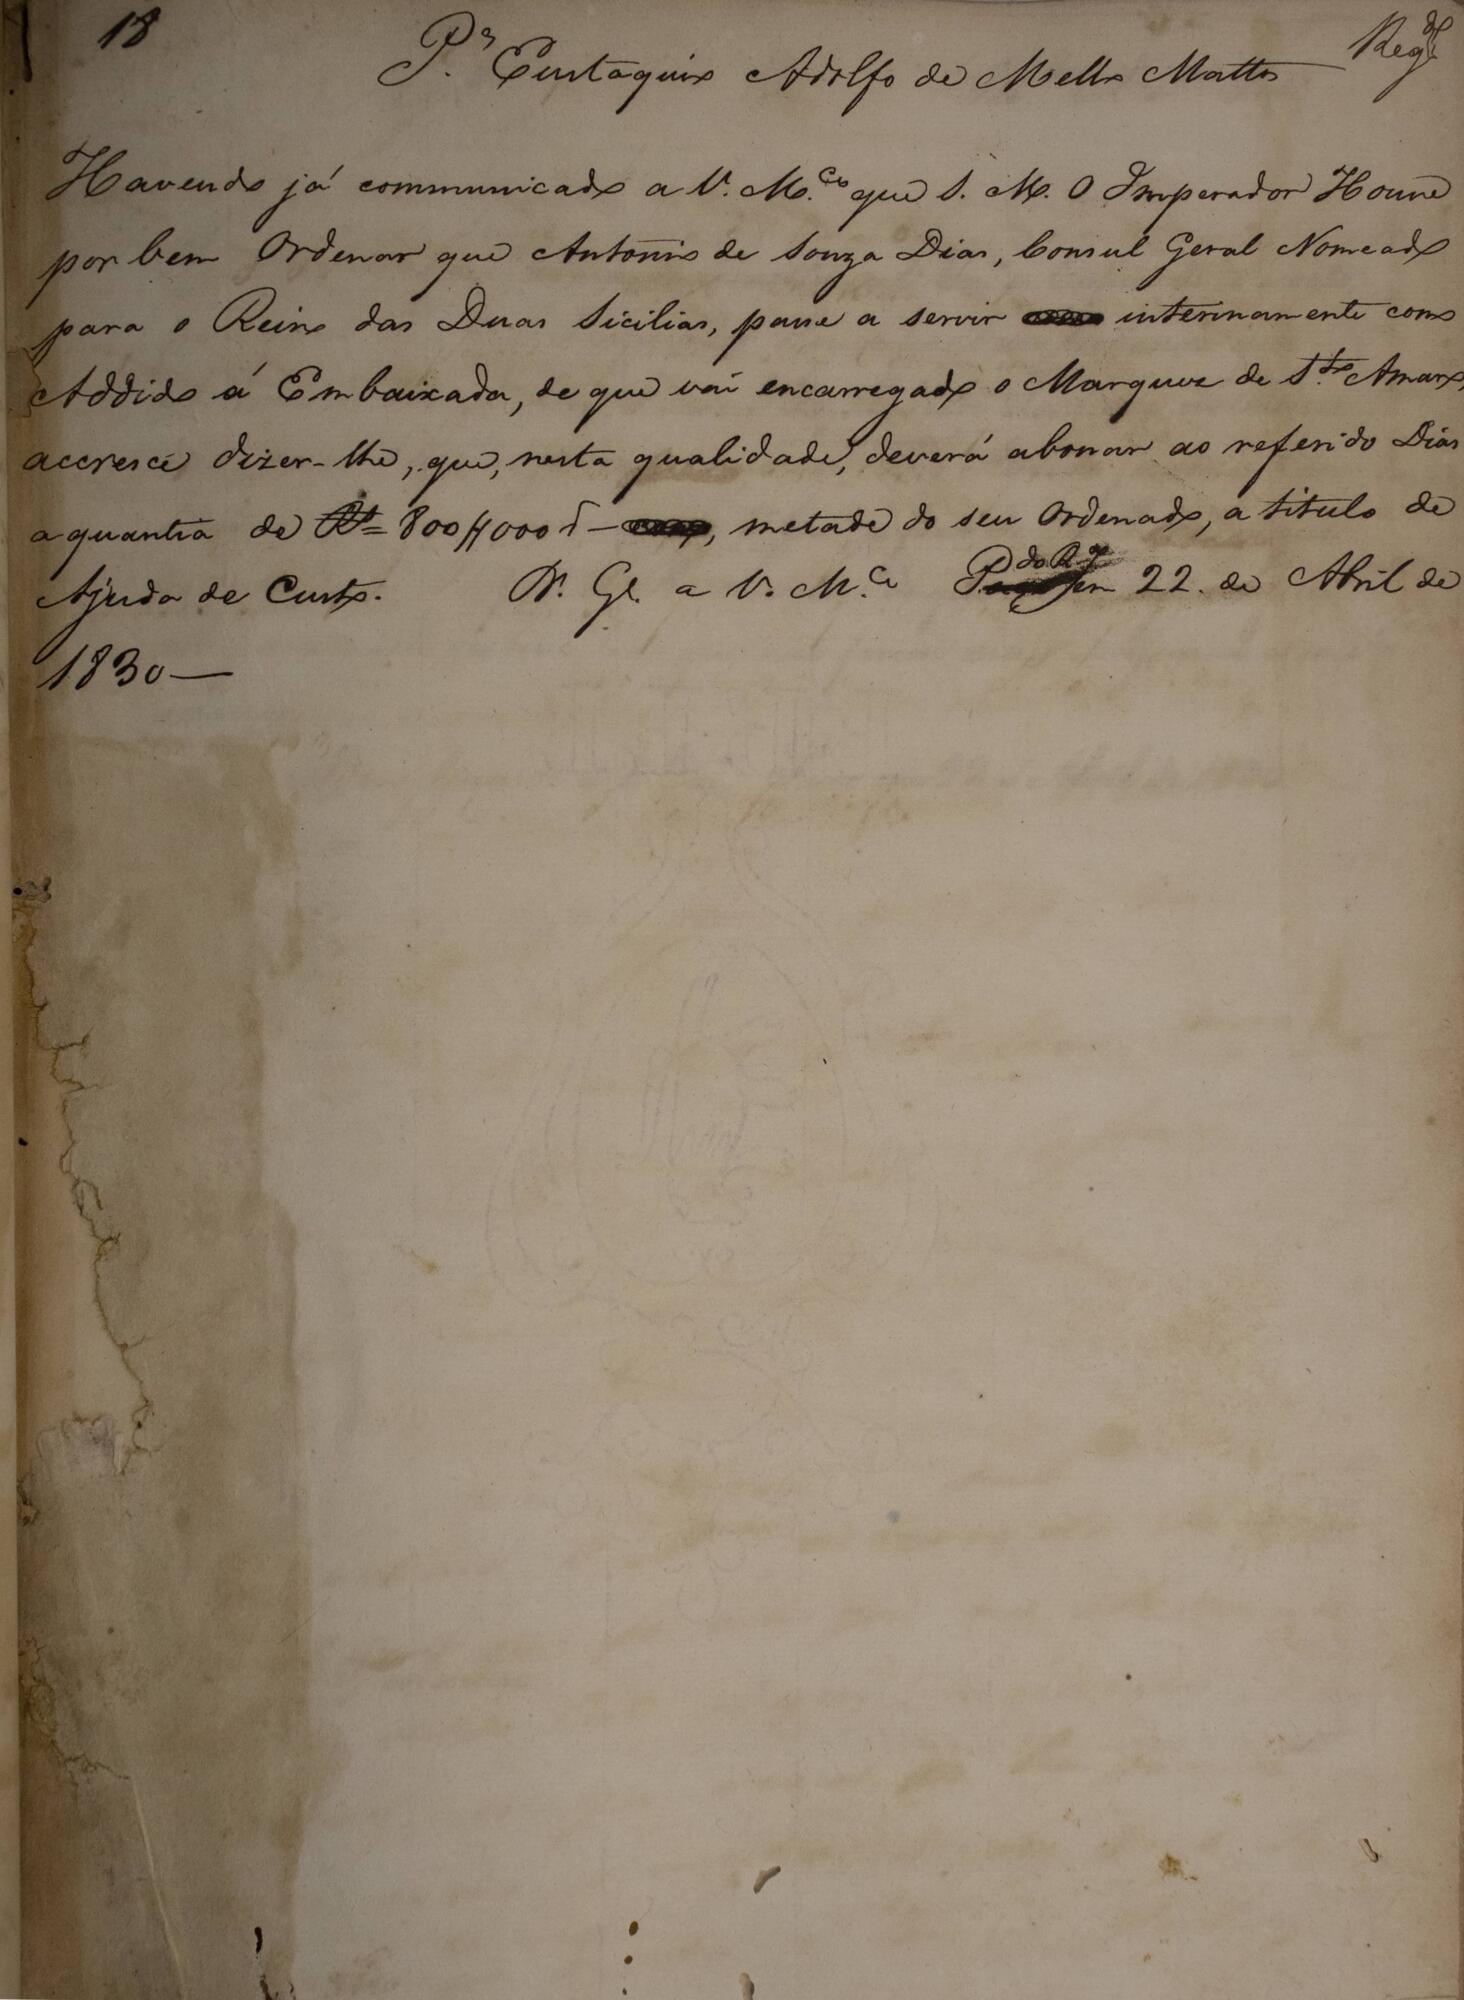 18
P.ª Eustaquio Adolfo de Mello Mattos
Reg.do
Havendo já communicado a V. M.ce que S. M. O Imperador Houve
por bem Ordenar que Antonio de Souza Dias, Consul Geral Nomeado
para o Reino das Duas Sicilias, passe a servir interinamente como
Addido á Embaixada, de que vai encarregado o Marquez de S.to Amaro,
accresce dizer-lhe, que, nesta qualidade, deverá abonar ao referido Dias
a quantia de R.s= 800$000 r —, metade do seu Ordenado, a titulo de
Ajuda de Custo. D.s G.e a V. M.ce P. do R. em 22. de Abril de
1830—